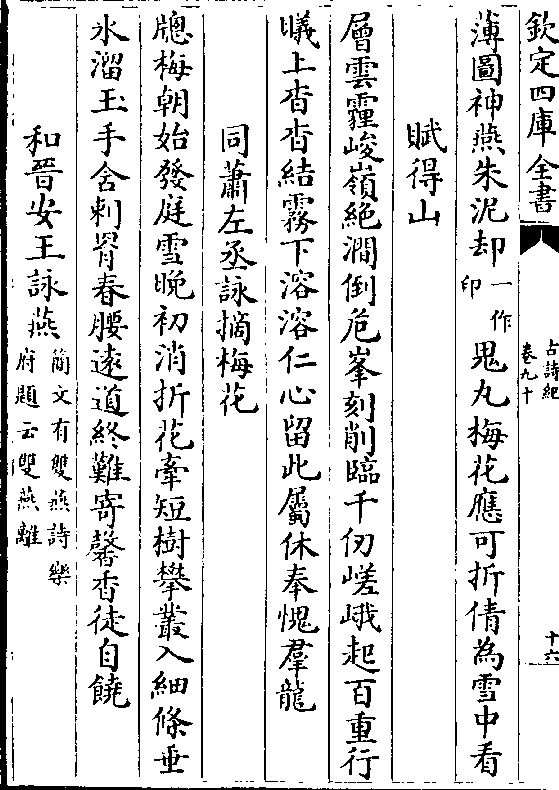 欽定四庫全書
古詩紀
卷九十
十六
薄圖神燕朱泥却一作印鬼丸梅花應可折倩為雪中看
賦得山
層雲霾峻嶺絶澗倒危峯刻削臨千仞嵯峨起百重行
曦上杳杳結霧下溶溶仁心留此屬休奉愧羣龍
同蕭左丞詠摘梅花
牕梅朝始發庭雪晚初消折花牽短樹攀叢入細條垂
氷溜玉手含刺罥春腰遠道終難寄馨香徒自饒
和晉安王詠燕簡文有雙燕詩樂府題云雙燕離